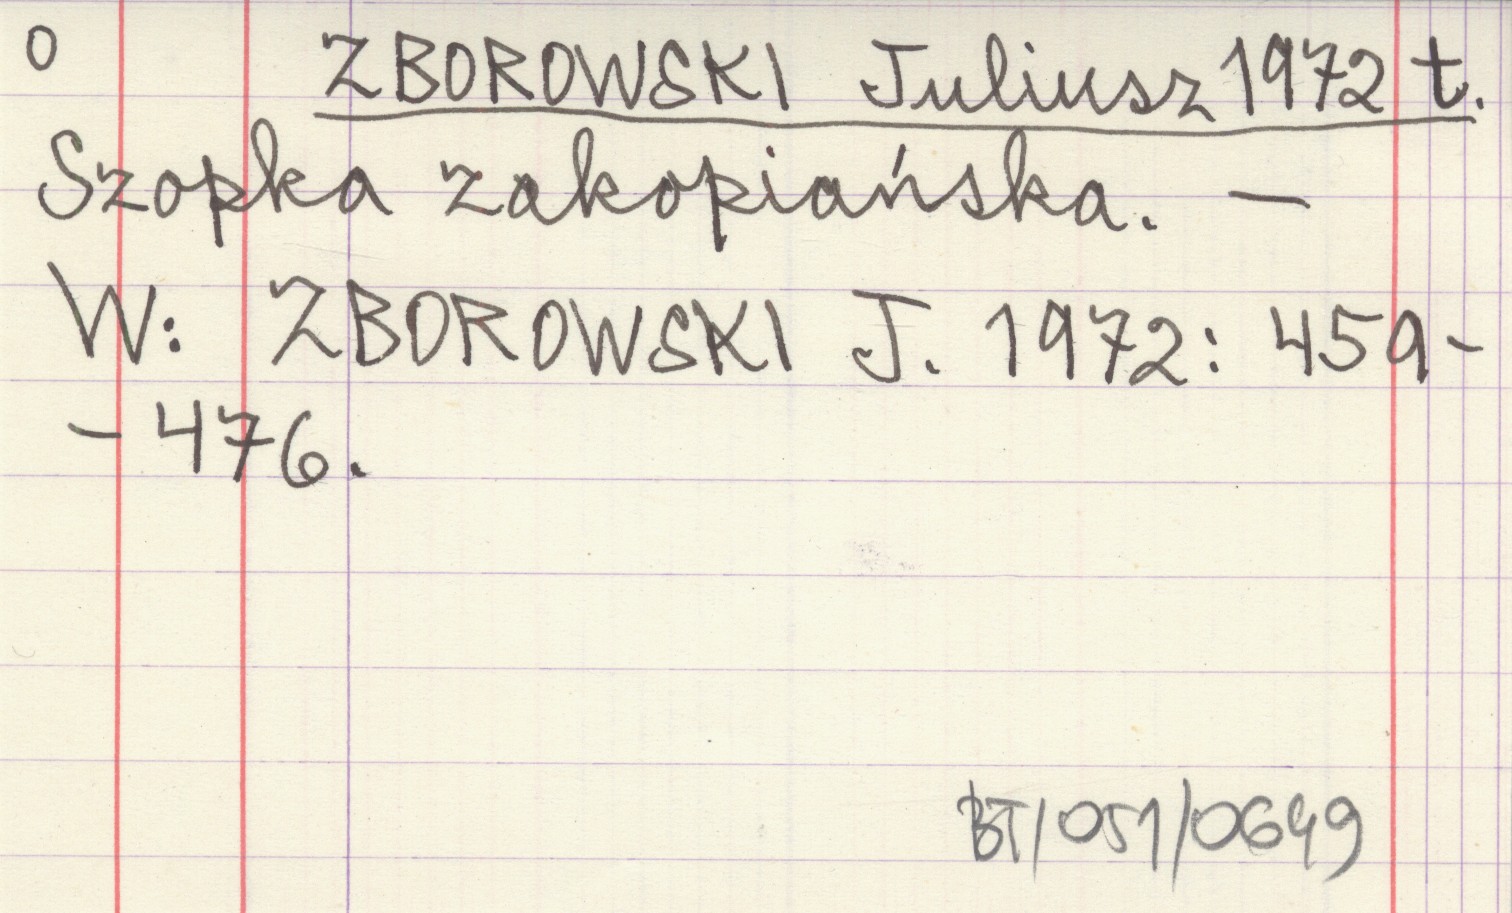 O ZBOROWSKI Juliusz 1972 t.
Szopka zakopiańska. —
W: ZBOROWSKI J. 1972: 459-
- 476.
BT/051/0649